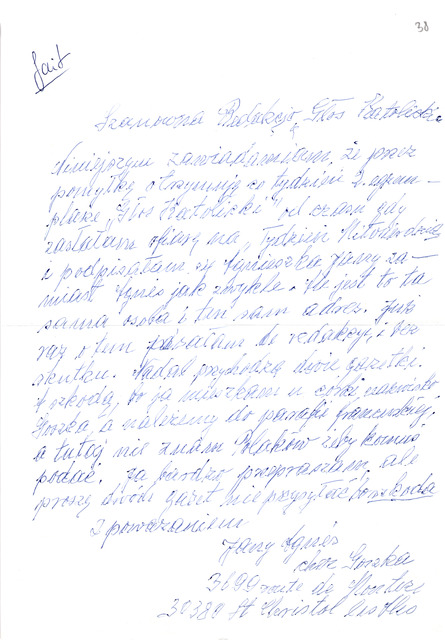 38
fait
Szanowna Redakcjo „Głos Katolicki"
Niniejszym zawiadamiam, że przez
pomyłkę otrzymuję co tydzień 2 egzem-
plarze „Głos Katolicki" od czasu gdy
zasłałam ofiarę na „Tydzień Miłosierdzia"
i podpisałam się Agnieszka Jany za-
miast Agnès jak zwykle. Ale jest to ta
sama osoba i ten sam adres. Już
raz o tem pisałam do redakcji, i bez
skutku. Nadal przychodzą dwie gazetki.
I szkoda, bo ja mieszkam u córki, nazwisko
Goszka, a należymy do parafii francuskiej,
a tutaj nie znam Polaków żeby komuś
podać. Ja bardzo przepraszam, ale
proszę dwóch gazet nie przysyłać bo szkoda
Z poważaniem
Jany Agnès
chez Goszka
3699 route de
30380 St Christol les Alès